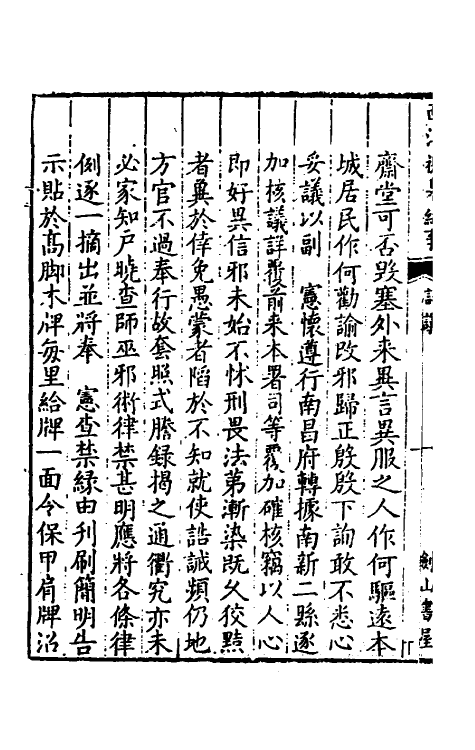 齋堂可否毀塞外来異言異服之人作何驅遠本
城居民作何勸諭改邪歸正殷殷下詢敢不悉心
妥議以副　憲懷遵行南昌府轉據南新二縣逐
加核議詳覆前来本署司等覆加確核竊以人心
即好異信邪未始不怵刑畏法第漸染既久狡黠
者冀於倖免愚蒙者陷於不知就使誥誡頻仍地
方官不過奉行故套照式謄録揭之通衢究亦未
必家知戶曉查師巫邪術律禁甚明應將各條律
例逐一摘出並將奉　憲查禁緣由刋刷簡明告
示貼於高脚木牌每里給牌一面令保甲肩牌沿
西江視臬紀事
劍山書屋